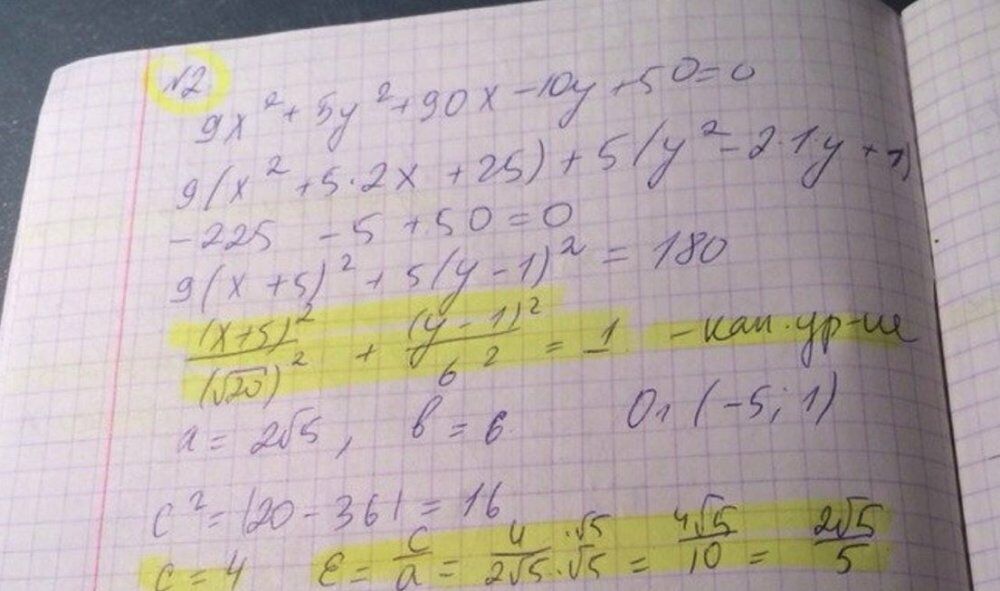 №2
9x² + 5y² + 90x - 10y + 50 = 0
9(x² + 5·2x + 25) + 5(y² - 2·1·y + 1)
-225 - 5 + 50 = 0
9(x + 5)² + 5(y - 1)² = 180
(x+5)²/(√20)² + (y-1)²/6² = 1 - кан. ур-ие
a = 2√5, в = 6 O₁ (-5; 1)
c² = |20 - 36| = 16
c = 4 ε = c/a = 4·√5/2√5·√5 = 4√5/10 = 2√5/5